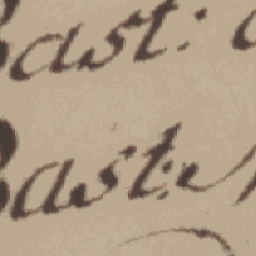 Bast:
Bast: